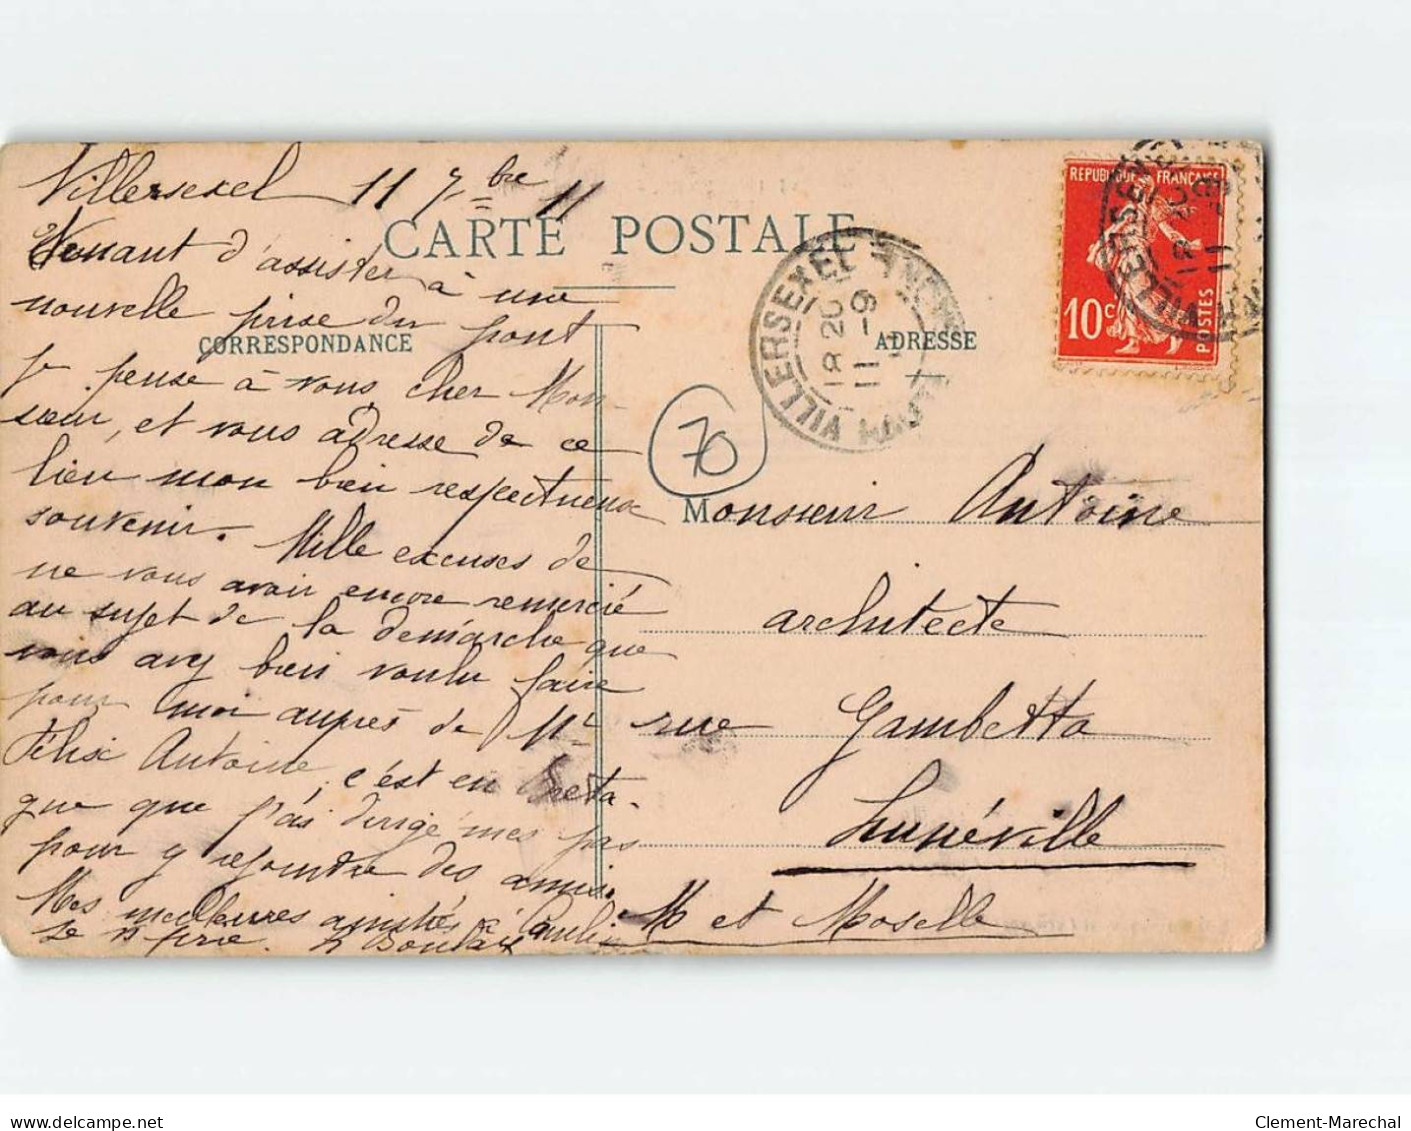 Villersexel 11 7bre 11
CARTE POSTALE
Venant d'assister à une
nouvelle prise du pont
CORRESPONDANCE
je pense à vous cher Mon-
sieur, et vous adresse de ce
lieu mon bien respectueux
souvenir. Mille excuses de
ne vous avoir encore remercié
au sujet de la démarche que
vous avez bien voulu faire
pour moi auprès de Mr
Félix Antoine, c'est en Breta-
gne que j'ai dirigé mes pas
pour y rejoindre des amis.
Mes meilleures amitiés à
je prie.
REPUBLIQUE FRANÇAISE
10c
POSTES
VILLERSEXEL
18 20
11 -9
ADRESSE
70
Monsieur Antoine
architecte
rue Gambetta
Lunéville
M et Moselle
Clement-Marechal